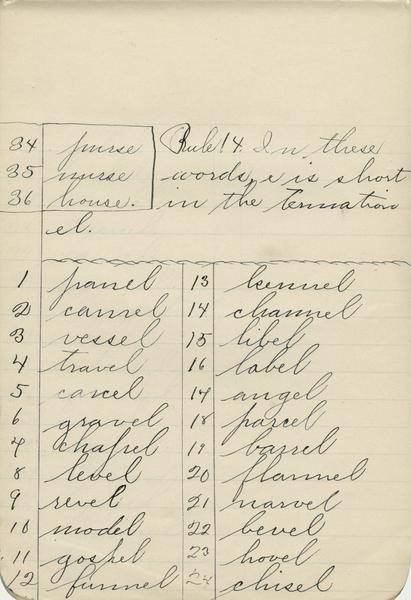 34 purse
35 nurse
36 house.
Rule 14. In these
words, e is short
in the termation
el.
1 panel
2 cannel
3 vessel
4 travel
5 cancel
6 gravel
7 chapel
8 level
9 revel
10 model
11 gospel
12 funnel
13 kennel
14 channel
15 libel
16 label
17 angel
18 parcel
19 barrel
20 flannel
21 marvel
22 bevel
23 hovel
24 chisel